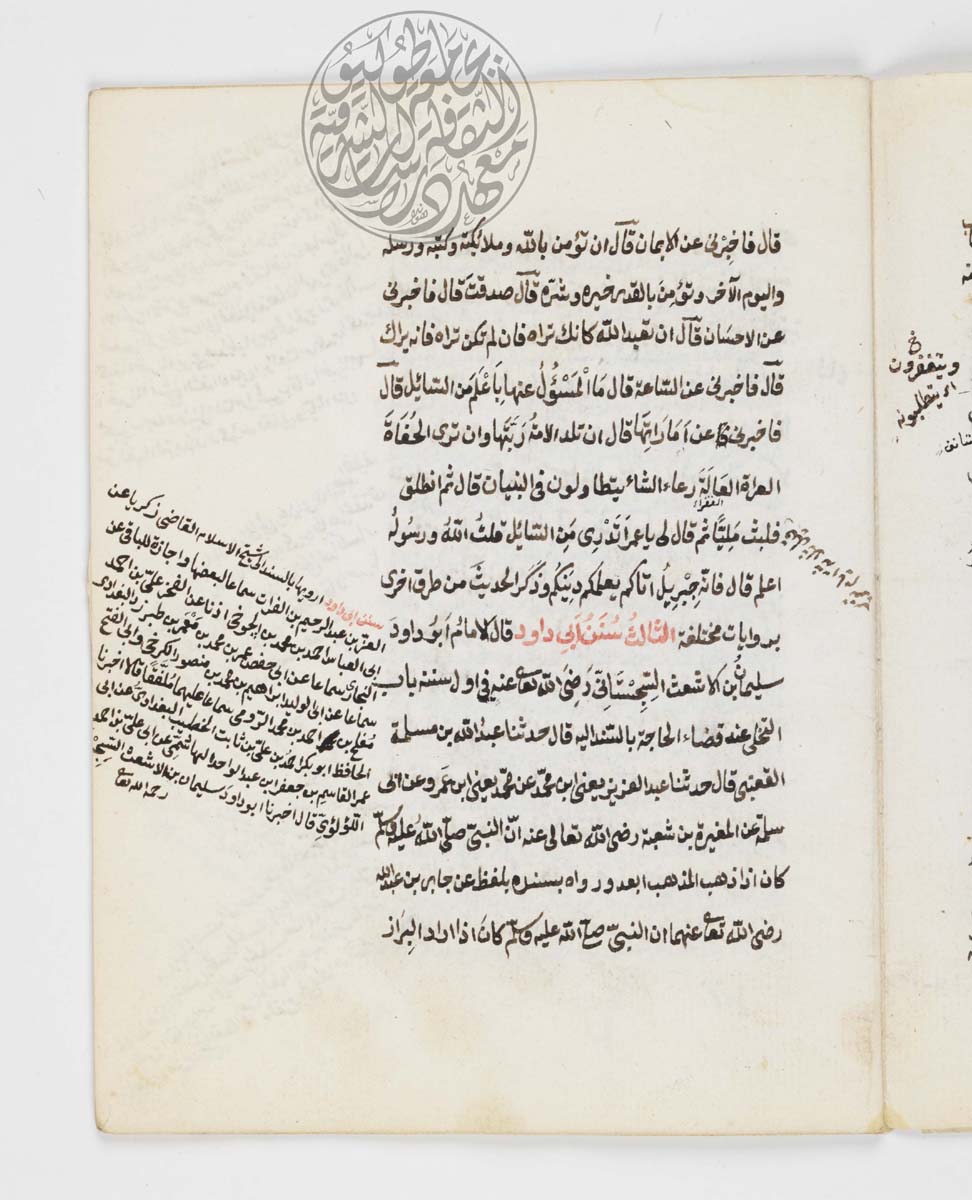 قال فاخبرني عن الايمان قال ان تؤمن بالله وملائكته وكتبه ورسله
واليوم الآخر وتؤمن بالقدر خيره وشره قال صدقت قال فاخبرني
عن الاحسان قال ان تعبد الله كانك تراه فان لم تكن تراه فانه يراك
قال فاخبرني عن الساعة قال ما المسؤول عنها باعلم من السائل قال
فاخبرني عن اماراتها قال ان تلد الامة ربتها وان ترى الحفاة
العراة العالة رعاء الشاء يتطاولون في البنيان قال ثم انطلق
الفقراء
فلبث مليًّا ثم قال لي يا عمر اتدري من السائل قلت الله ورسوله
اعلم قال فانه جبريل اتاكم يعلمكم دينكم وذكر الحديث من طرق اخرى
بروايات مختلفة الثالث سنن ابي داود قال الامام ابو داود
سليمان بن الاشعث السجستاني رضي الله تعالى عنه في اول سننه باب
التخلي عند قضاء الحاجة بالسند اليه قال حدثنا عبد الله بن مسلمة
القعنبي قال حدثنا عبد العزيز يعني ابن محمد عن محمد يعني ابن عمرو عن ابي
سلمة عن المغيرة بن شعبة رضي الله تعالى عنه ان النبي صلى الله عليه وسلم
كان اذا ذهب المذهب ابعد ورواه بسنده بلفظ عن جابر بن عبد الله
رضي الله تعالى عنهما ان النبي صلى الله عليه وسلم كان اذا اراد البراز
سنن ابي داود ارويها بالسند الى شيخ الاسلام القاضي زكريا عن
العز بن عبد الرحيم بن الفرات سماعا لبعضها واجازة للباقي عن
ابي العباس احمد بن محمد بن الجوخي اذنا عن الفخر علي بن احمد
البخاري سماعا عن ابي حفص عمر بن محمد بن معمر بن طبرزد البغدادي
سماعا عن ابي الوليد ابراهيم بن محمد بن منصور الكرخي وابي الفتح
مفلح بن احمد بن محمد الرومي سماعا عليهما ملفقا قالا اخبرنا
الحافظ ابو بكر احمد بن علي بن ثابت الخطيب البغدادي عن ابي
عمر القاسم بن جعفر بن عبد الواحد الهاشمي عن ابي علي بن احمد
اللؤلؤي قال اخبرنا ابو داود سليمان بن الاشعث
رحمه الله تعالى
ويتقفرون
اي يتطلبونه